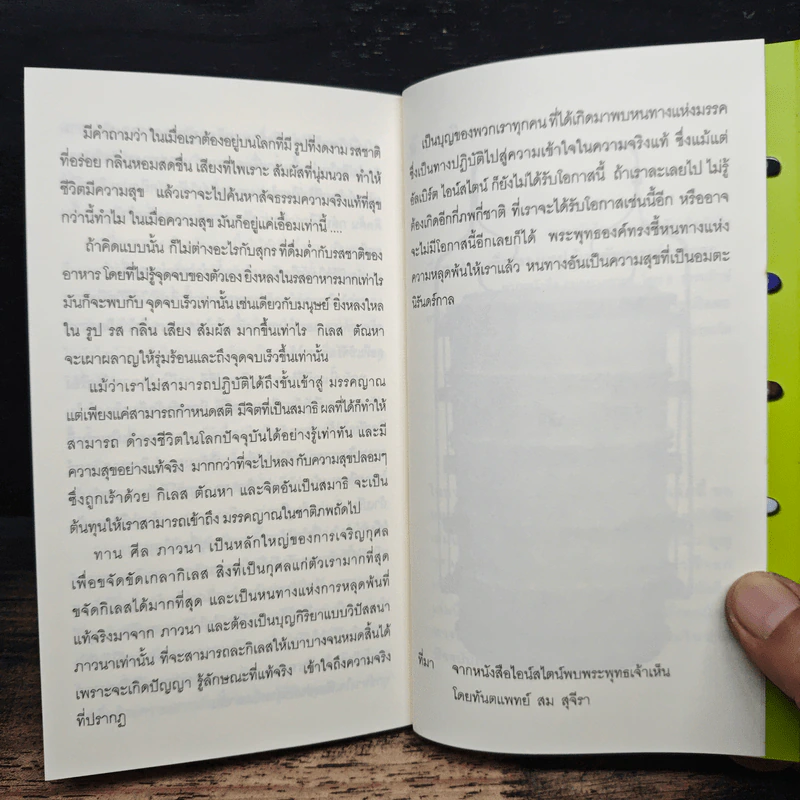 มีคำถามว่า ในเมื่อเราต้องอยู่บนโลกที่มี รูปที่งดงาม รสชาติ
ที่อร่อย กลิ่นหอมสดชื่น เสียงที่ไพเราะ สัมผัสที่นุ่มนวล ทำให้
ชีวิตมีความสุข แล้วเราจะไปค้นหาสัจธรรมความจริงแท้ที่สุข
กว่านี้ทำไม ในเมื่อความสุข มันก็อยู่แค่เอื้อมเท่านี้ ....
ถ้าคิดแบบนั้น ก็ไม่ต่างอะไรกับสุกร ที่ดื่มด่ำกับรสชาติของ
อาหาร โดยที่ไม่รู้จุดจบของตัวเอง ยิ่งหลงในรสอาหารมากเท่าไร
มันก็จะพบกับ จุดจบเร็วเท่านั้น เช่นเดียวกับมนุษย์ ยิ่งหลงใหล
ใน รูป รส กลิ่น เสียง สัมผัส มากขึ้นเท่าไร กิเลส ตัณหา
จะเผาผลาญให้รุ่มร้อนและถึงจุดจบเร็วขึ้นเท่านั้น
แม้ว่าเราไม่สามารถปฏิบัติได้ถึงขั้นเข้าสู่ มรรคญาณ
แต่เพียงแค่สามารถกำหนดสติ มีจิตที่เป็นสมาธิ ผลที่ได้ก็ทำให้
สามารถ ดำรงชีวิตในโลกปัจจุบันได้อย่างรู้เท่าทัน และมี
ความสุขอย่างแท้จริง มากกว่าที่จะไปหลง กับความสุขปลอมๆ
ซึ่งถูกเร้าด้วย กิเลส ตัณหา และจิตอันเป็นสมาธิ จะเป็น
ต้นทุนให้เราสามารถเข้าถึง มรรคญาณในชาติภพถัดไป
ทาน ศีล ภาวนา เป็นหลักใหญ่ของการเจริญกุศล
เพื่อขจัดขัดเกลากิเลส สิ่งที่เป็นกุศลแก่ตัวเรามากที่สุด
ขจัดกิเลสได้มากที่สุด และเป็นหนทางแห่งการหลุดพ้นที่
แท้จริงมาจาก ภาวนา และต้องเป็นบุญกิริยาแบบวิปัสสนา
ภาวนาเท่านั้น ที่จะสามารถละกิเลสให้เบาบางจนหมดสิ้นได้
เพราะจะเกิดปัญญา รู้ลักษณะที่แท้จริง เข้าใจถึงความจริง
ที่ปรากฏ
เป็นบุญของพวกเราทุกคน ที่ได้เกิดมาพบหนทางแห่งมรรค
ซึ่งเป็นทางปฏิบัติไปสู่ความเข้าใจในความจริงแท้ ซึ่งแม้แต่
อัลเบิร์ต ไอน์สไตน์ ก็ยังไม่ได้รับโอกาสนี้ ถ้าเราละเลยไป ไม่รู้
ต้องเกิดอีกกี่ภพกี่ชาติ ที่เราจะได้รับโอกาสเช่นนี้อีก หรืออาจ
จะไม่มีโอกาสนี้อีกเลยก็ได้ พระพุทธองค์ทรงชี้หนทางแห่ง
ความหลุดพ้นให้เราแล้ว หนทางอันเป็นความสุขที่เป็นอมตะ
นิรันดร์กาล
ที่มา จากหนังสือไอน์สไตน์พบพระพุทธเจ้าเห็น
โดยทันตแพทย์ สม สุจีรา